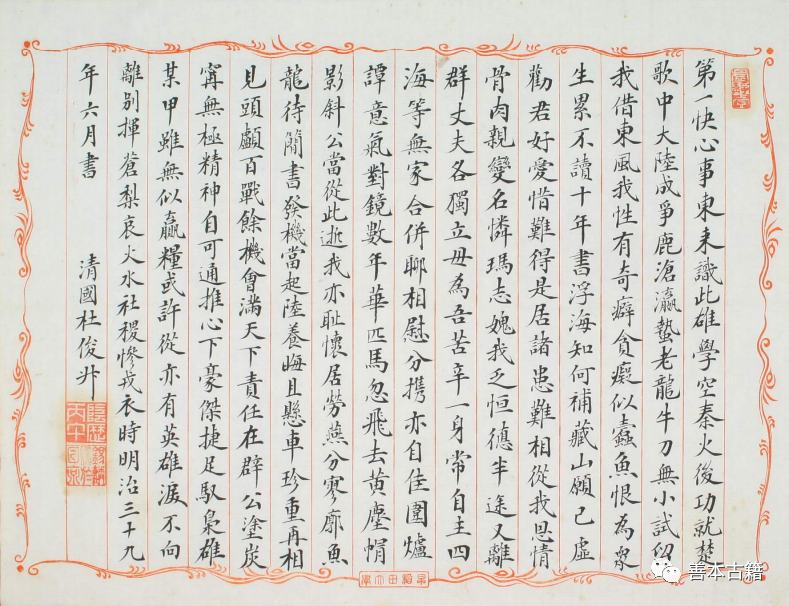 第一快心事東来識此雄學空秦火後功就楚
歌中大陸成爭鹿滄瀛蟄老龍牛刀無小試留
我借東風我性有奇癖貪癡似蠹魚恨為衆
生累不讀十年書浮海知何補藏山願已虛
勸君好愛惜難得是居諸患難相從我恩情
骨肉親變名憐瑪志媿我乏恒德半途又離
群丈夫各獨立毋為吾苦辛一身常自主四
海等無家合併聊相慰分攜亦自佳圍爐
譚意氣對鏡數年華匹馬忽飛去黃塵帽
影斜公當從此逝我亦恥懷居勞燕分寥廓魚
龍待簡書發機當起陸養晦且懸車珍重再相
見頭顱百戰餘機會滿天下責任在群公塗炭
寗無極精神自可通推心下豪傑捷足馭梟雄
某甲雖無似贏糧或許從亦有英雄淚不向
離別揮蒼梨哀火水社稷慘戎衣時明治三十九
年六月書 清國杜俊
善本古籍